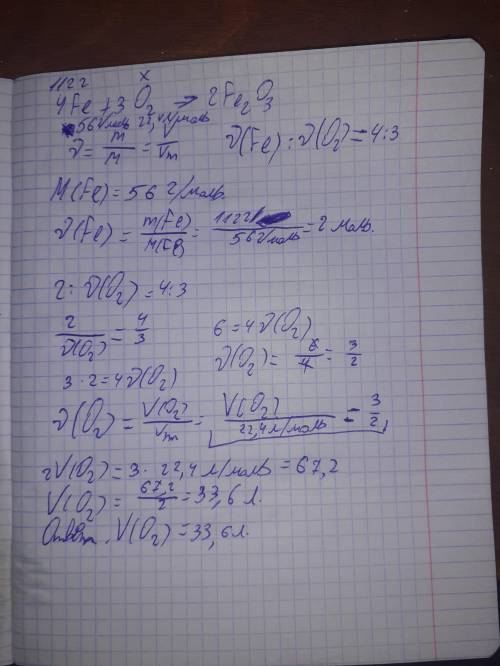 112 г x
4Fe + 3O₂ → 2Fe₂O₃
56 г/моль 22,4 л/моль
ν = m/M = V/Vm ν(Fe) : ν(O₂) = 4:3
M(Fe) = 56 г/моль.
ν(Fe) = m(Fe)/M(Fe) = 112 г/56 г/моль = 2 моль.
2 : ν(O₂) = 4:3
2/ν(O₂) = 4/3 6 = 4ν(O₂)
ν(O₂) = 6/4 = 3/2
3·2 = 4ν(O₂)
ν(O₂) = V(O₂)/Vm = V(O₂)/22,4 л/моль = 3/2
2V(O₂) = 3 · 22,4 л/моль = 67,2
V(O₂) = 67,2/2 = 33,6 л.
Ответ. V(O₂) = 33,6 л.